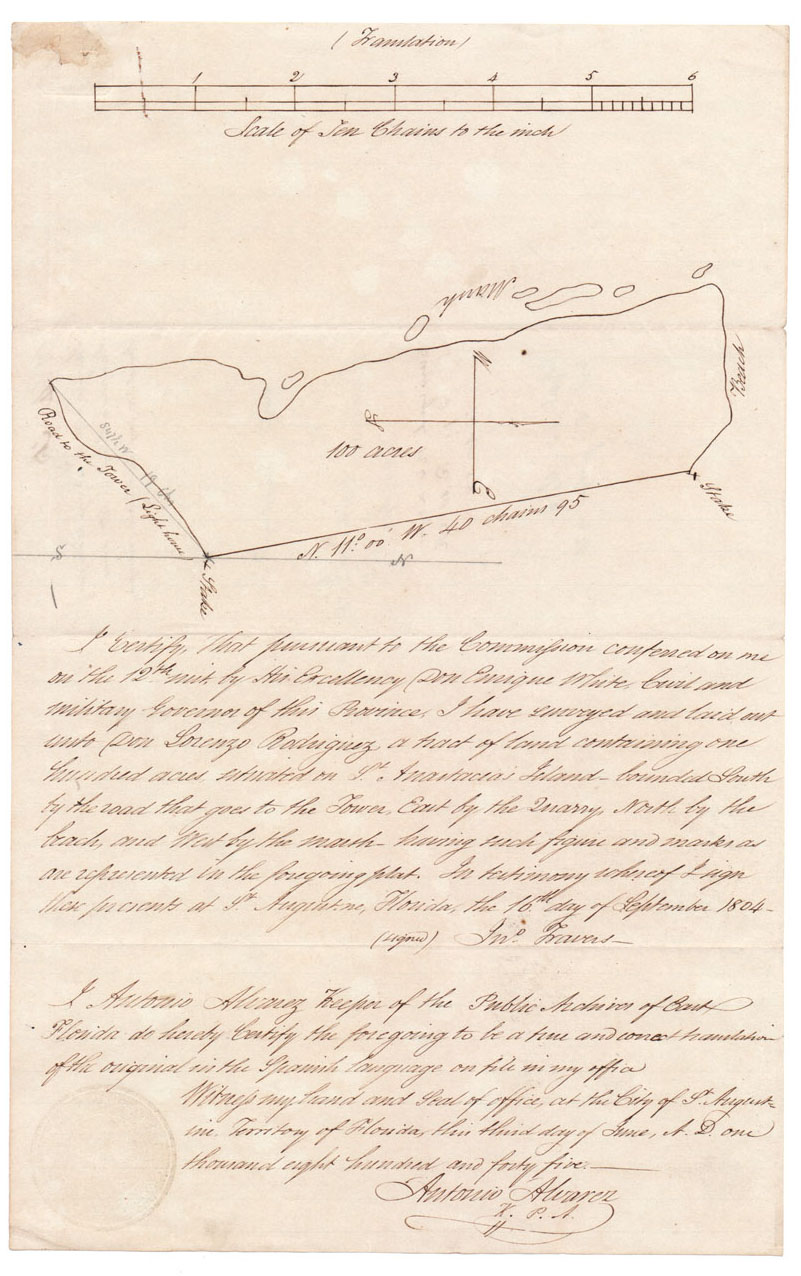 (Translation)
1 2 3 4 5 6
Scale of Ten Chains to the inch
Marsh
Beach
W
S
100 acres
E
Road to the Tower (Light house)
Stake
N. 11° 00' W. 40 chains 95
S
N
Stake
I Certify, that pursuant to the Commission conferred on me
on the 12th inst by His Excellency Don Enrique White, Civil and
military Governor of this Province, I have surveyed and laid out
unto Don Lorenzo Rodriguez, a tract of land containing one
hundred acres situated on St. Anastacia's Island - bounded South
by the road that goes to the Tower, East by the Quarry, North by the
beach, and West by the marsh - having such figure and marks as
are represented in the foregoing plat. In testimony whereof I sign
these presents at St. Augustine, Florida, the 16th day of September 1804 -
(signed) Jno. Travers -
I Antonio Alvarez Keeper of the Public Archives of East
Florida do hereby Certify the foregoing to be a true and correct translation
of the original in the Spanish Language on file in my office
Witness my hand and Seal of office, at the City of St. August-
ine, Territory of Florida, this third day of June, A. D. one
thousand eight hundred and forty five. -
Antonio Alvarez
K. P. A.